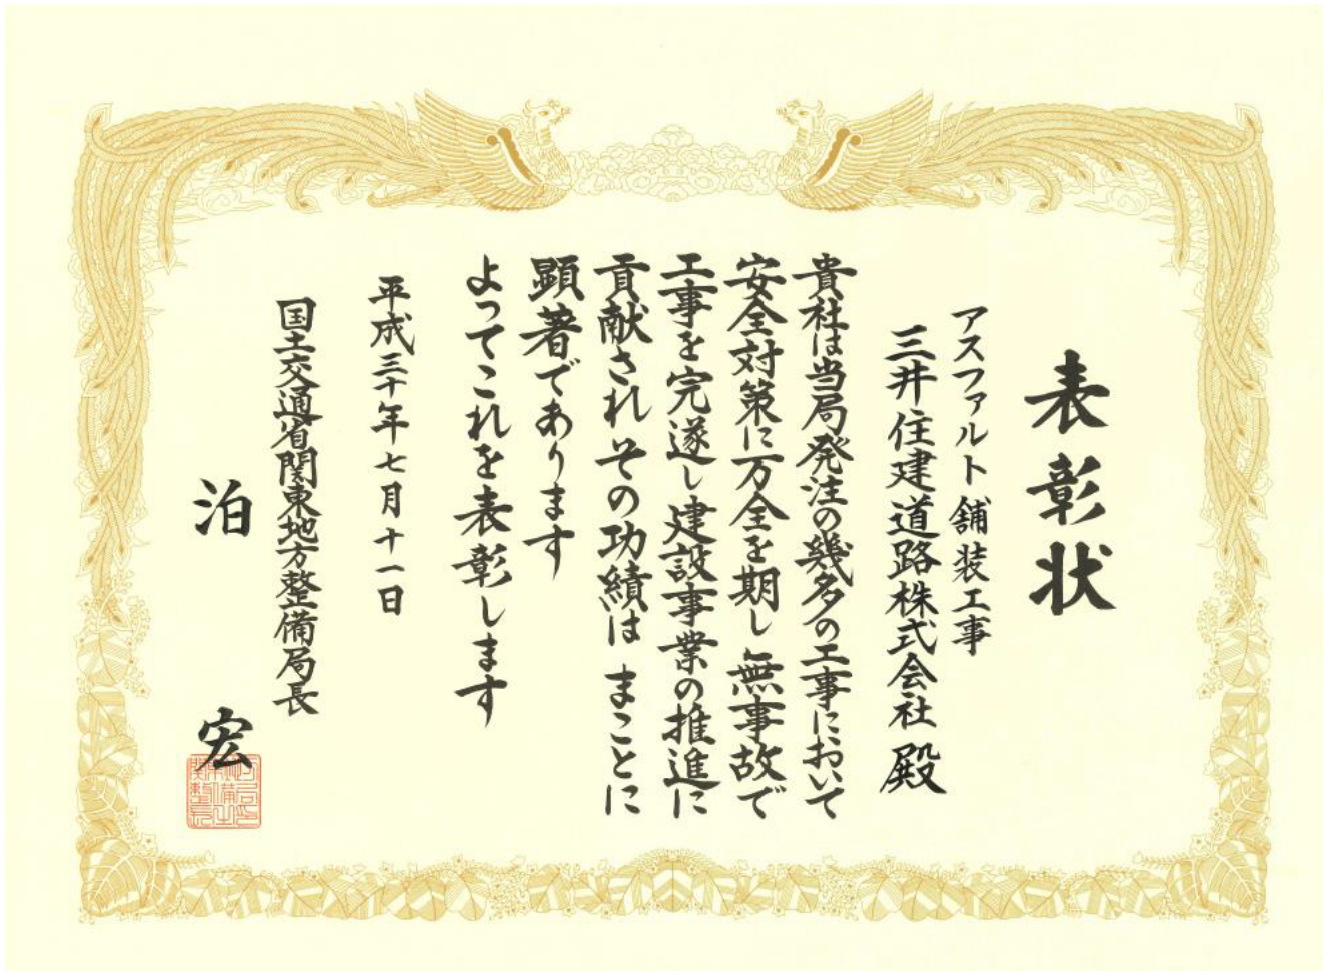 表彰状
アスファルト舗装工事
三井住建道路株式会社 殿
貴社は当局発注の幾多の工事において
安全対策に万全を期し 無事故で
工事を完遂し 建設事業の推進に
貢献され その功績は まことに
顕著であります
よってこれを表彰します
平成三十年七月十一日
国土交通省関東地方整備局長
泊 宏